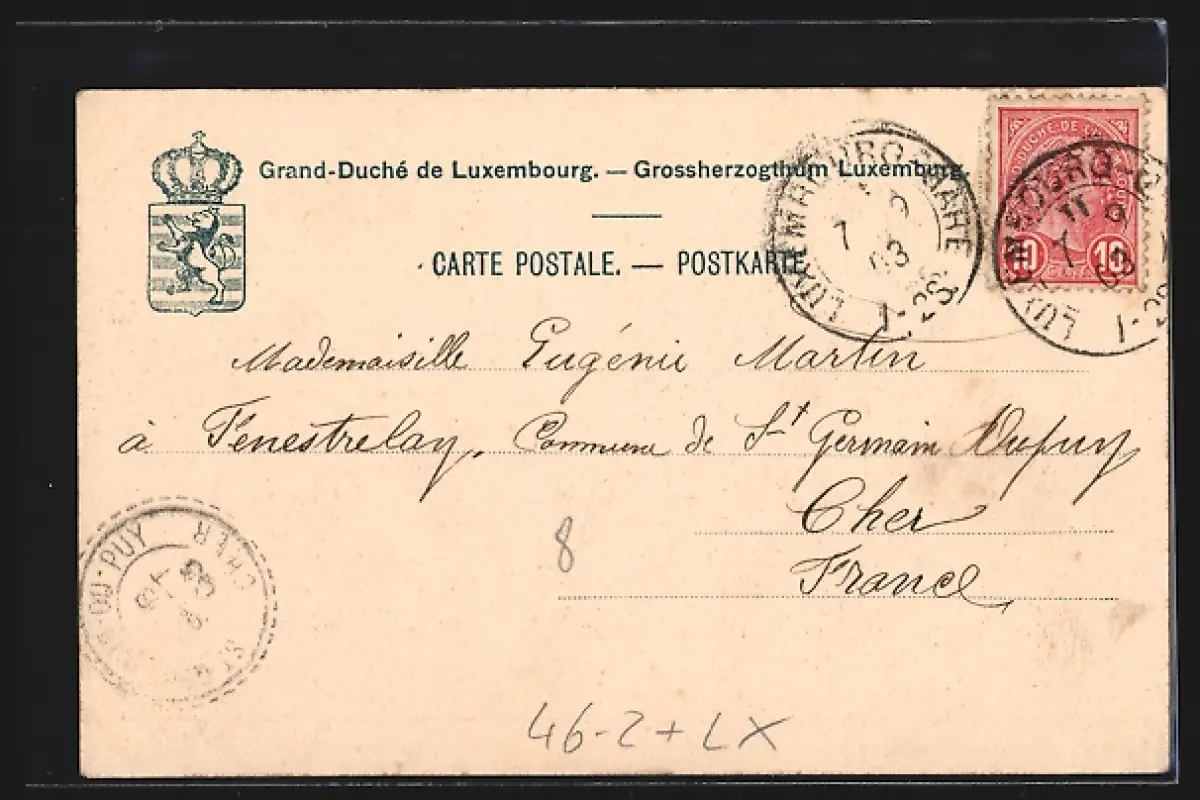 Grand-Duché de Luxembourg. — Grossherzogthum Luxemburg.
CARTE POSTALE. — POSTKARTE
LUXEMBOURG-GARE
7 9 03
1-2S
GRAND-DUCHÉ DE
10 10
LUXEMBOURG-G
11 9
7 03
1-2S
Mademoiselle Eugénie Martin
à Fenestrelay, Commune de St Germain Dupuy
Cher
France
DU-PUY CHER
ST
03
8
46-2+LX